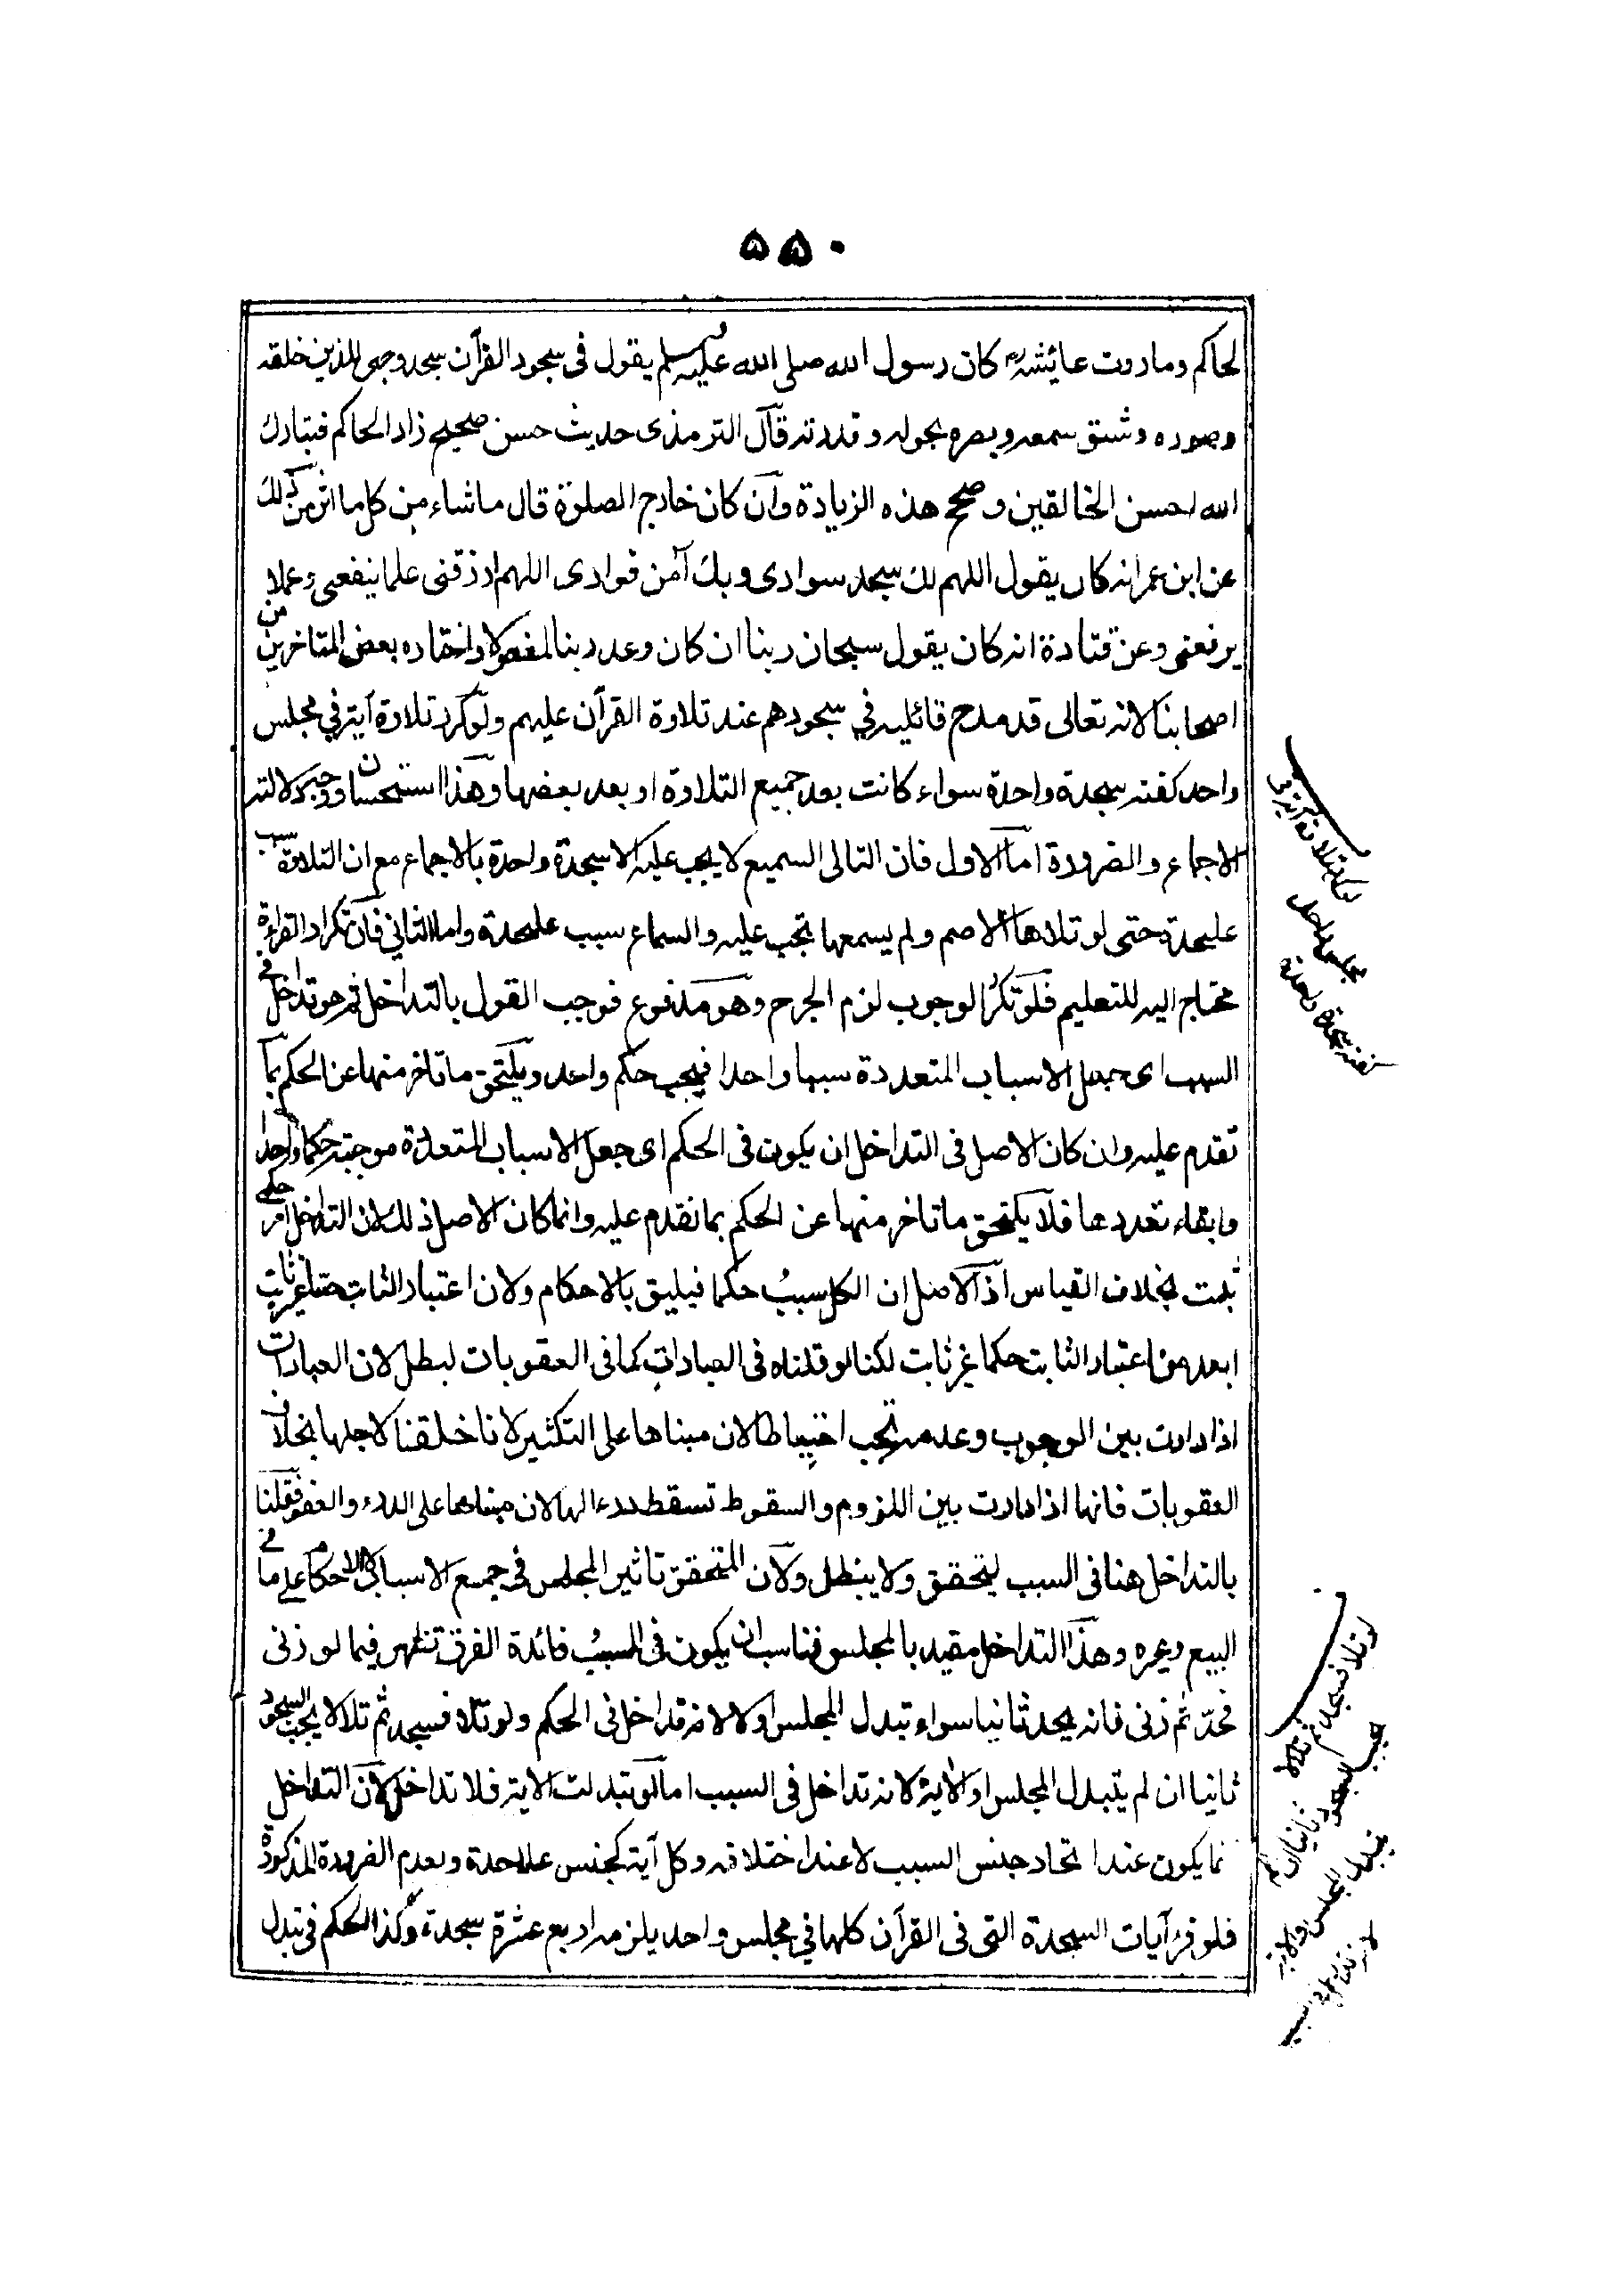 ۵۵۰
لحاكم وما روت عائشة رض كان رسول الله صلى الله عليه وسلم يقول فى سجود القرآن سجد وجهى للذين خلقه
وصوره وشق سمعه وبصره بحوله وقدرته قآل الترمذى حديث حسن صحيح زاد الحاكم فتبارك
الله احسن الخالقين وصحح هذه الزيادة وآن كان خارج الصلوة قال ما شاء من كل ما اثر من ذلك
عن ابن عمر انه كان يقول اللهم لك سجد سوادى وبك آمن فوادى اللهم ارزقنى علما ينفعنى وعملا
يرفعنى وعن قتادة انه كان يقول سبحان ربنا ان كان وعد ربنا لمفعولا واختاره بعض المتاخرين من
اصحابنا لانه تعالى قد مدح قائليه في سجودهم عند تلاوة القرآن عليهم ولو كرر تلاوة آية في مجلس
واحد كفته سجدة واحدة سواء كانت بعد جميع التلاوة او بعد بعضها وهذا استحسان ووجه دلالته
الاجماع والضرورة اما الاول فان التالى السميع لا يجب عليه الا سجدة واحدة بالاجماع مع ان التلاوة سبب
عليحدة حتى لو تلاها الاصم ولم يسمعها تجب عليه والسماع سبب عليحدة واما الثاني فان تكرار القراءة
محتاج اليه للتعليم فلو تكرر الوجوب لزم الحرج وهو مدفوع فوجب القول بالتداخل ثم هو تداخل في
السبب اى جعل الاسباب المتعددة سببا واحدا فيجب حكم واحد ويلتحق ما تاخر منها عن الحكم بما
تقدم عليه وان كان الاصل فى التداخل ان يكون فى الحكم اى جعل الاسباب المتعددة موجبة حكما واحدا
وابقاء تعددها فلا يلتحق ما تاخر منها عن الحكم بما تقدم عليه وانما كان الاصل ذلك لان التداخل امر حكمى
ثبت بخلاف القياس اذ الاصل ان الكل سبب حكما فيليق بالاحكام ولان اعتبار الثابت حسا غير ثابت
ابعد من اعتبار الثابت حكما غير ثابت لكنا لو قلناه فى العبادات كما فى العقوبات لبطل لان العبادات
اذا دارت بين الوجوب وعدمه تجب احتياطا لان مبناها على التكثير لانا خلقنا لاجلها بخلاف
العقوبات فانها اذا دارت بين اللزوم والسقوط تسقط درءا لها لان مبناها على الدرء والعفو فقلنا
بالتداخل هنا فى السبب ليتحقق ولا يبطل ولان المتحقق تاثير المجلس في جميع الاسباب لا الاحكام على ما في
البيع وغيره وهذا التداخل مقيد بالمجلس فناسب ان يكون فى السبب فائدة الفرق تظهر فيما لو زنى
فحد ثم زنى فانه يحد ثانيا سواء تبدل المجلس اولا لانه تداخل فى الحكم ولو تلا فسجد ثم تلا لا يجب السجود
ثانيا ان لم يتبدل المجلس او الآية لانه تداخل فى السبب اما لو تبدلت الاية فلا تداخل لان التداخل
نما يكون عند اتحاد جنس السبب لا عند اختلافه وكل آية كجنس علاحدة وبعدم الضرورة المذكورة
فلو قرء آيات السجدة التى فى القرآن كلها في مجلس واحد يلزمه اربع عشرة سجدة وكذا الحكم فى تبدل
تلاوة آية فى
مجلس واحد
كفته سجدة واحدة
لو تلا فسجد ثم تلا لا
يجب السجود ثانيا ان لم
يتبدل المجلس او الاية
لانه تداخل فى السبب